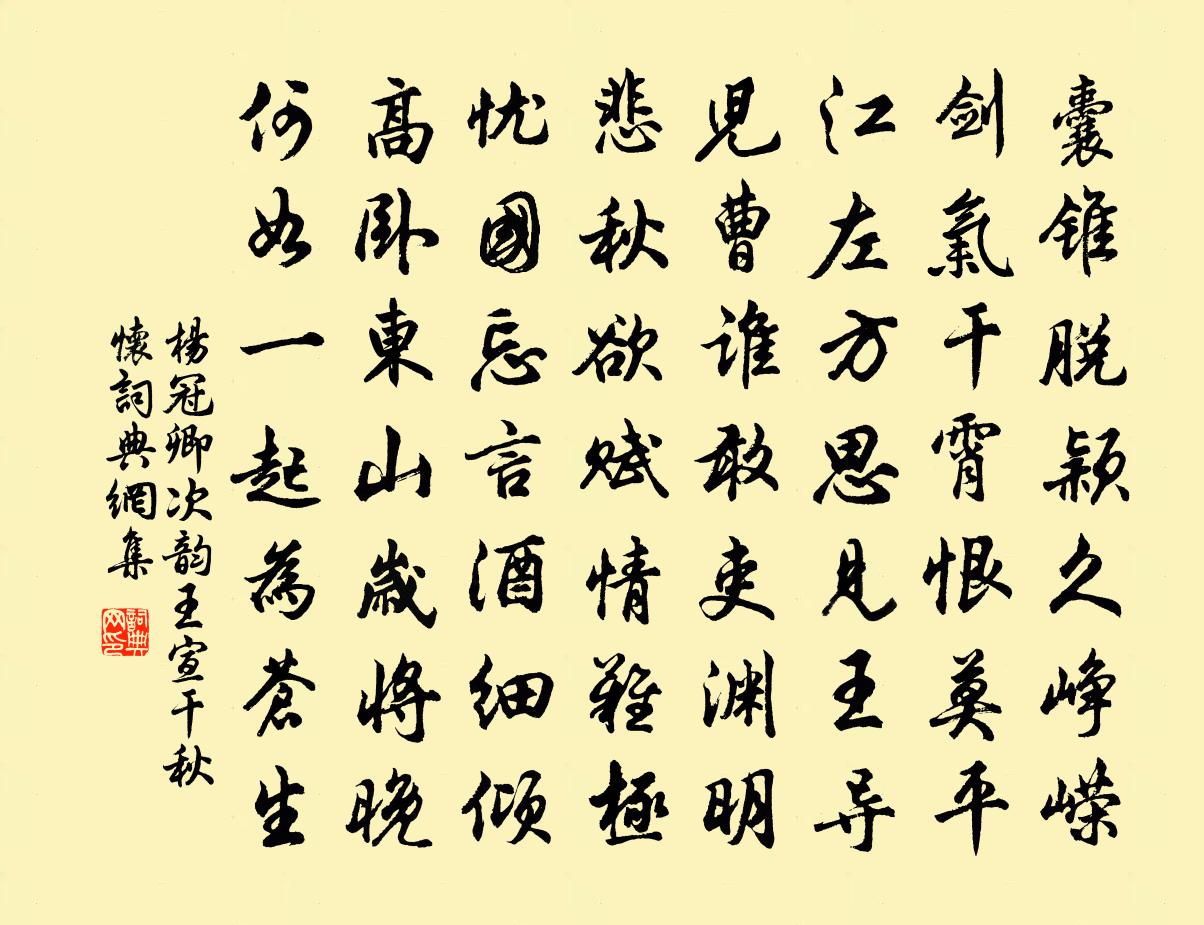 囊锥脱颖久峥嵘
剑氣干霄恨莫平
江左方思見王导
児曹谁敢吏渊明
悲秋欲赋情難極
忧國忘言酒细倾
高卧東山歳将晚
何如一起為蒼生
楊冠卿次韵王宣干秋
懷詞典網集
詞典
网印